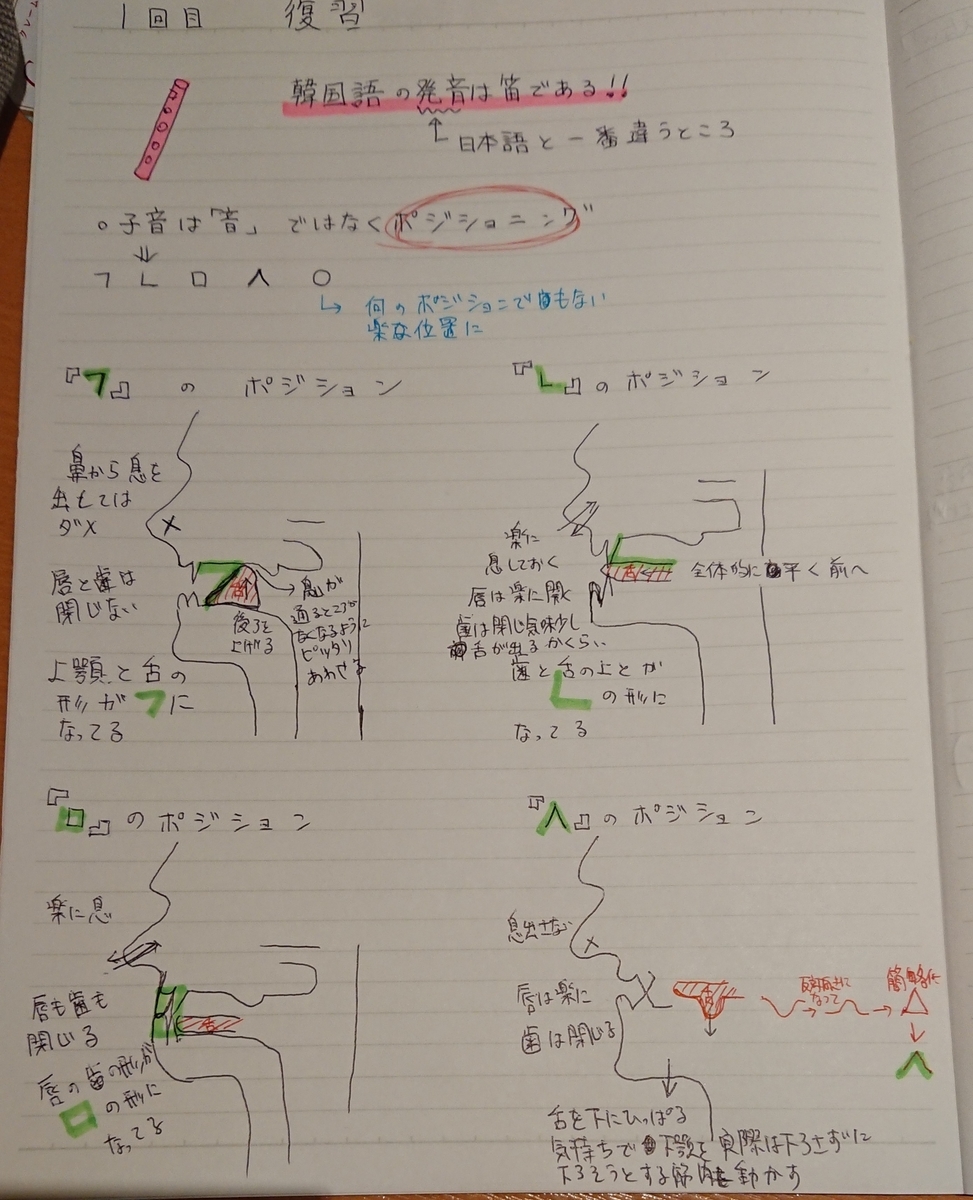 1回目 復習
韓国語の発音は笛である!!
↑日本語と一番違うところ
○子音は「音」ではなくポジショニング
⇓
ㄱ ㄴ ㅁ ㅅ ㅇ
↳ 何のポジションでもない
楽な位置に
『ㄱ』のポジション
鼻から息を
出してては
ダメ
×
唇と歯は
閉じない
上顎と舌の
形がㄱに
なってる
舌
後ろを
上げる
→息が
通るところが
なくなるように
ピッタリ
あわせる
『ㄴ』のポジション
楽に
息しておく
唇は楽に開く
歯は閉じ気味少し
舌が出るかくらい
歯と舌の上とが
ㄴの形に
なってる
舌
全体的に平く前へ
『ㅁ』のポジション
楽に息
唇も歯も
閉じる
唇の歯の形が
ㅁの形に
なってる
舌
『ㅅ』のポジション
息出さない
×
唇は楽に
歯は閉じる
舌
なって
簡略に
△
↓
ㅅ
舌を下にひっぱる
気持ちで下顎を実際は下ろさずに
下ろそうとする筋肉を動かす